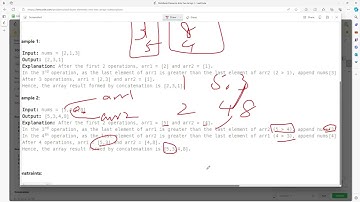 3 8
5 4
ample 1:
Input: nums = [2,1,3]
Output: [2,3,1]
Explanation: After the first 2 operations, arr1 = [2] and arr2 = [1].
In the 3rd operation, as the last element of arr1 is greater than the last element of arr2 (2 > 1), append nums[3]
After 3 operations, arr1 = [2,3] and arr2 = [1].
Hence, the array result formed by concatenation is [2,3,1].
1 5,3
ample 2:
arr1
Input: nums =
2 4 8
Output: [5,3,4,8]
arr2
Explanation: After the first 2 operations, arr1 = [5] and arr2 = [4].
In the 3rd operation, as the last element of arr1 is greater than the last element of arr2 (5 > 4), append
In the 4th operation, as the last element of arr2 is greater than the last element of arr1 (4 > 3), append nums[4]
After 4 operations, arr1 = [5,3] and arr2 = [4,8].
Hence, the array result formed by concatenation is [5,3,4,8].
nstraints: